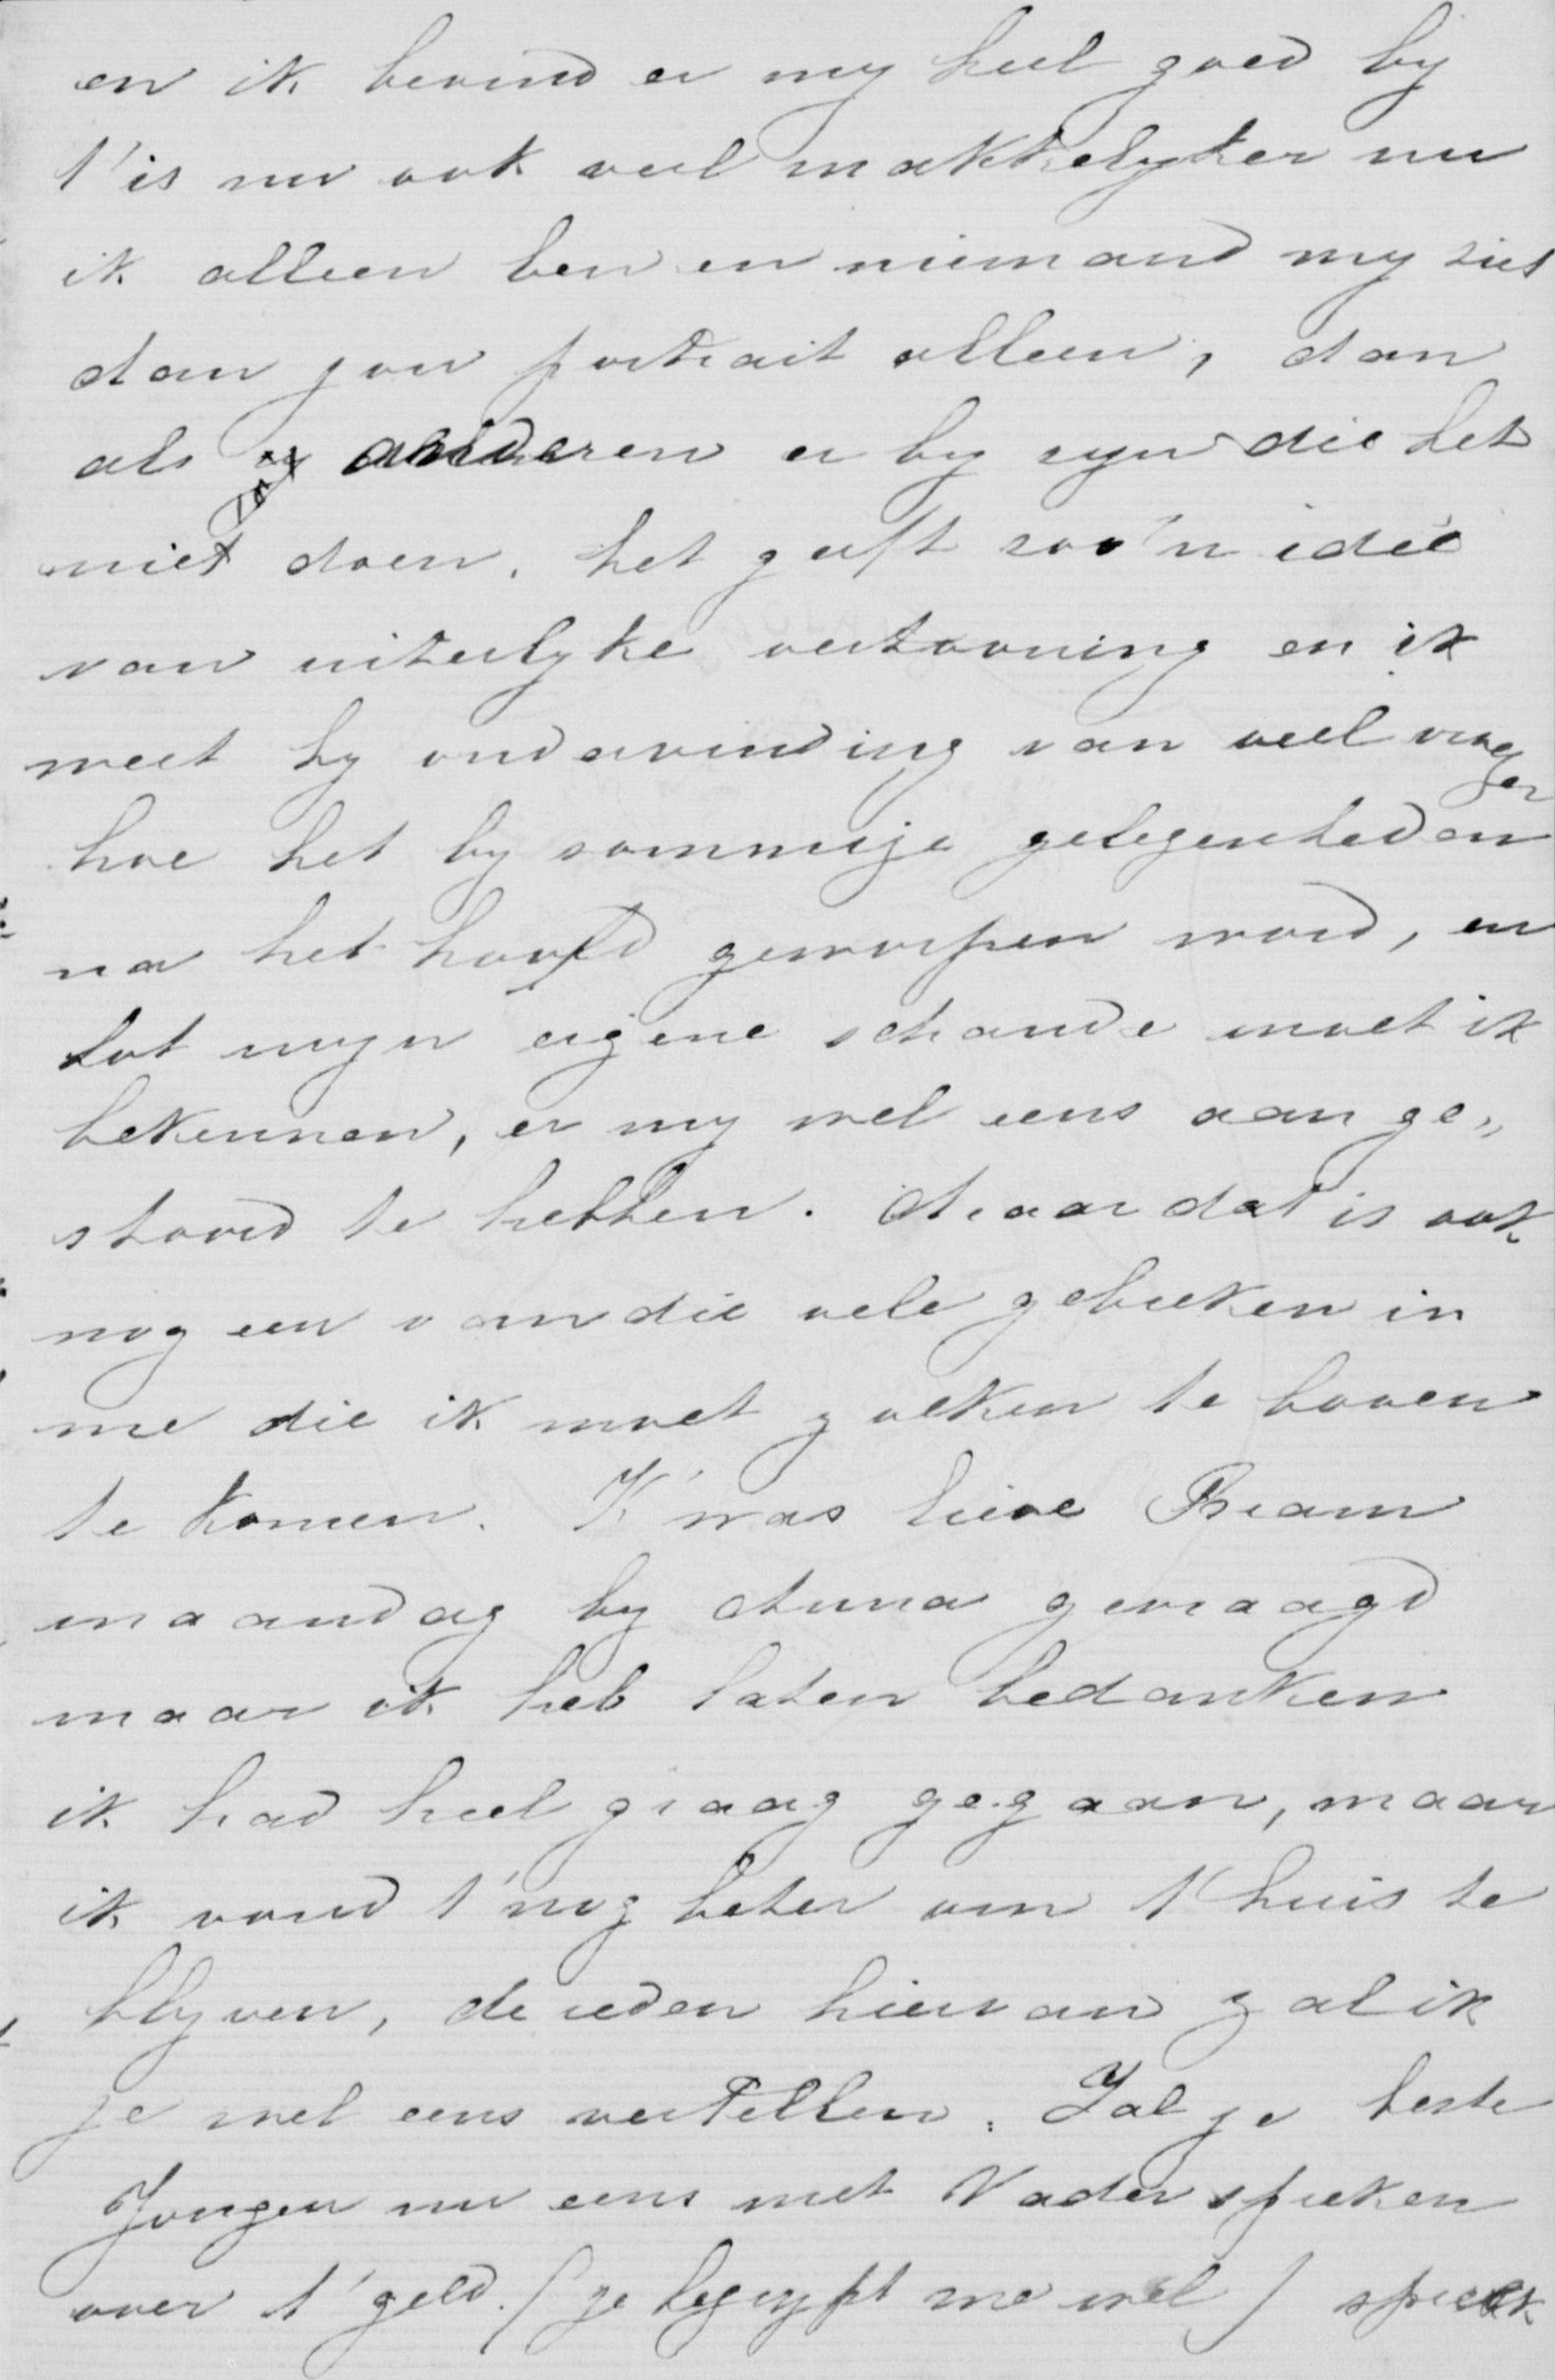 en ik bevind er my heel goed by
t'is nu ook veel makkelyker nu
ik alleen ben en niemand my ziet
dan jou portrait alleen, dan
als anderen er by zyn die het
niet doen. het geeft zoo'n idée
van uiterlyke vertooning en ik
weet by ondervinding van veel vroeger
hoe het by sommige gelegenheden
na het hoofd geworpen word, en
tot myn eigene schande moet ik
bekennen, er my wel eens aan ge„
stoord te hebben. Maar dat is ook
nog een van die vele gebreken in
me die ik moet zoeken te boven
te komen. K'was lieve Bram
maandag by Anna gevraagd
maar ik heb laten bedanken
ik had heel graag gegaan, maar
ik vond t'nog beter om t'huis te
blyven, de reden hiervan zal ik
je wel eens vertellen. Zal je beste
Jongen nu eens met Vader spreken
over t'geld. (je begrypt me wel) spreek